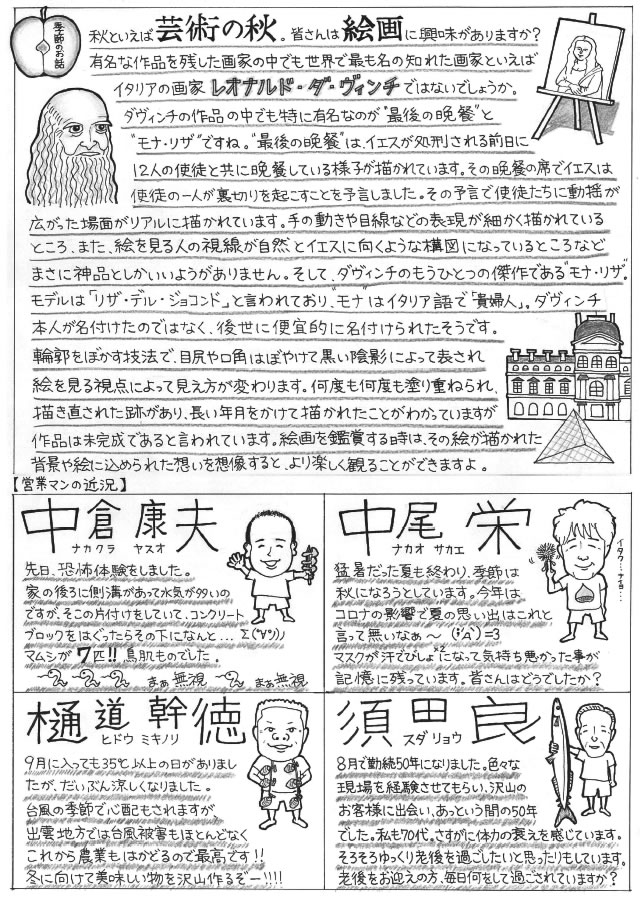 季節のお話
秋といえば芸術の秋。皆さんは絵画に興味がありますか？
有名な作品を残した画家の中でも世界で最も名の知れた画家といえば
イタリアの画家 レオナルド・ダ・ヴィンチではないでしょうか。
ダヴィンチの作品の中でも特に有名なのが"最後の晩餐"と
"モナ・リザ"ですね。"最後の晩餐"は、イエスが処刑される前日に
12人の使徒と共に晩餐している様子が描かれています。その晩餐の席でイエスは
使徒の一人が裏切りを起こすことを予言しました。その予言で使徒たちに動揺が
広がった場面がリアルに描かれています。手の動きや目線などの表現が細かく描かれている
ところ、また、絵を見る人の視線が自然とイエスに向くような構図になっているところなど
まさに神品としかいいようがありません。そして、ダヴィンチのもうひとつの傑作である"モナ・リザ"。
モデルは「リザ・デル・ジョコンド」と言われており、"モナ"はイタリア語で「貴婦人」。ダヴィンチ
本人が名付けたのではなく、後世に便宜的に名付けられたそうです。
輪郭をぼかす技法で、目尻や口角はぼやけて黒い陰影によって表され
絵を見る視点によって見え方が変わります。何度も何度も塗り重ねられ、
描き直された跡があり、長い年月をかけて描かれたことがわかっていますが
作品は未完成であると言われています。絵画を鑑賞する時は、その絵が描かれた
背景や絵に込められた想いを想像すると、より楽しく観ることができますよ。
【営業マンの近況】
中倉康夫
ナカクラ ヤスオ
先日、恐怖体験をしました。
家の後ろに側溝があって水気が多いの
ですが、そこの片付けをしていて、コンクリート
ブロックをはぐったらその下になんと… Σ(°∀°)ﾉ
マムシが7匹!!鳥肌ものでした。
まぁ無視 まぁ無視
中尾 栄
ナカオ サカエ
イタク…ナイヨ…
猛暑だった夏も終わり、季節は
秋になろうとしています。今年は
コロナの影響で夏の思い出はこれと
言って無いなぁ〜 (;´Д`)=3
マスクが汗でびしょびしょになって気持ち悪かった事が
記憶に残っています。皆さんはどうでしたか？
樋道幹徳
ヒドウ ミキノリ
9月に入っても35℃以上の日がありまし
たが、だいぶん涼しくなりました。
台風の季節で心配もされますが、
出雲地方では台風被害もほとんどなく
これから農業もはかどるので最高です!!
冬に向けて美味しい物を沢山作るぞー!!!!
須田 良
スダ リョウ
8月で勤続50年になりました。色々な
現場を経験させてもらい、沢山の
お客様に出会い、あっという間の50年
でした。私も70代。さすがに体力の衰えを感じています。
そろそろゆっくり老後を過ごしたいと思ったりもしています。
老後をお迎えの方、毎日何をして過ごされていますか？